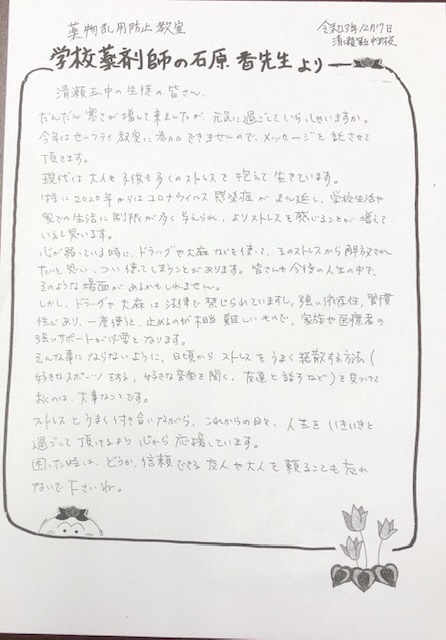 薬物乱用防止教室
令和3年12月7日
清瀬第五中学校
学校薬剤師の石原香先生より
清瀬五中の生徒の皆さん、
だんだん寒さが増して来ましたが、元気に過ごしていらっしゃいますか。
今年はセーフティ教室に参加できませんので、メッセージを託させて
頂きます。
現代は大人も子供も多くのストレスを抱えて生きています。
特に2020年からはコロナウイルス感染症がまん延し、学校生活や
家での生活に制限が多く与えられ、よりストレスを感じることが増えて
いると思います。
心が弱っている時に、ドラッグや大麻などを使って、そのストレスから解放され
たいと思い、つい使ってしまうことがあります。皆さんも今後の人生の中で、
そのような場面があるかもしれません。
しかし、ドラッグや大麻は法律で禁じられていますし、強い依存性、習慣
性があり、一度使うと、止めるのが相当難しいもので、家族や医療者の
強いサポートが必要となります。
そんな事にならないように、日頃からストレスをうまく発散する方法(
好きなスポーツをする、好きな音楽を聞く、友達と話すなど)を見つけて
おくのは、大事なことです。
ストレスとうまく付き合いながら、これからの日々、人生をいきいきと
過ごして頂けるよう心から応援しています。
困った時は、どうか、信頼できる友人や大人を頼ることも忘れ
ないで下さいね。